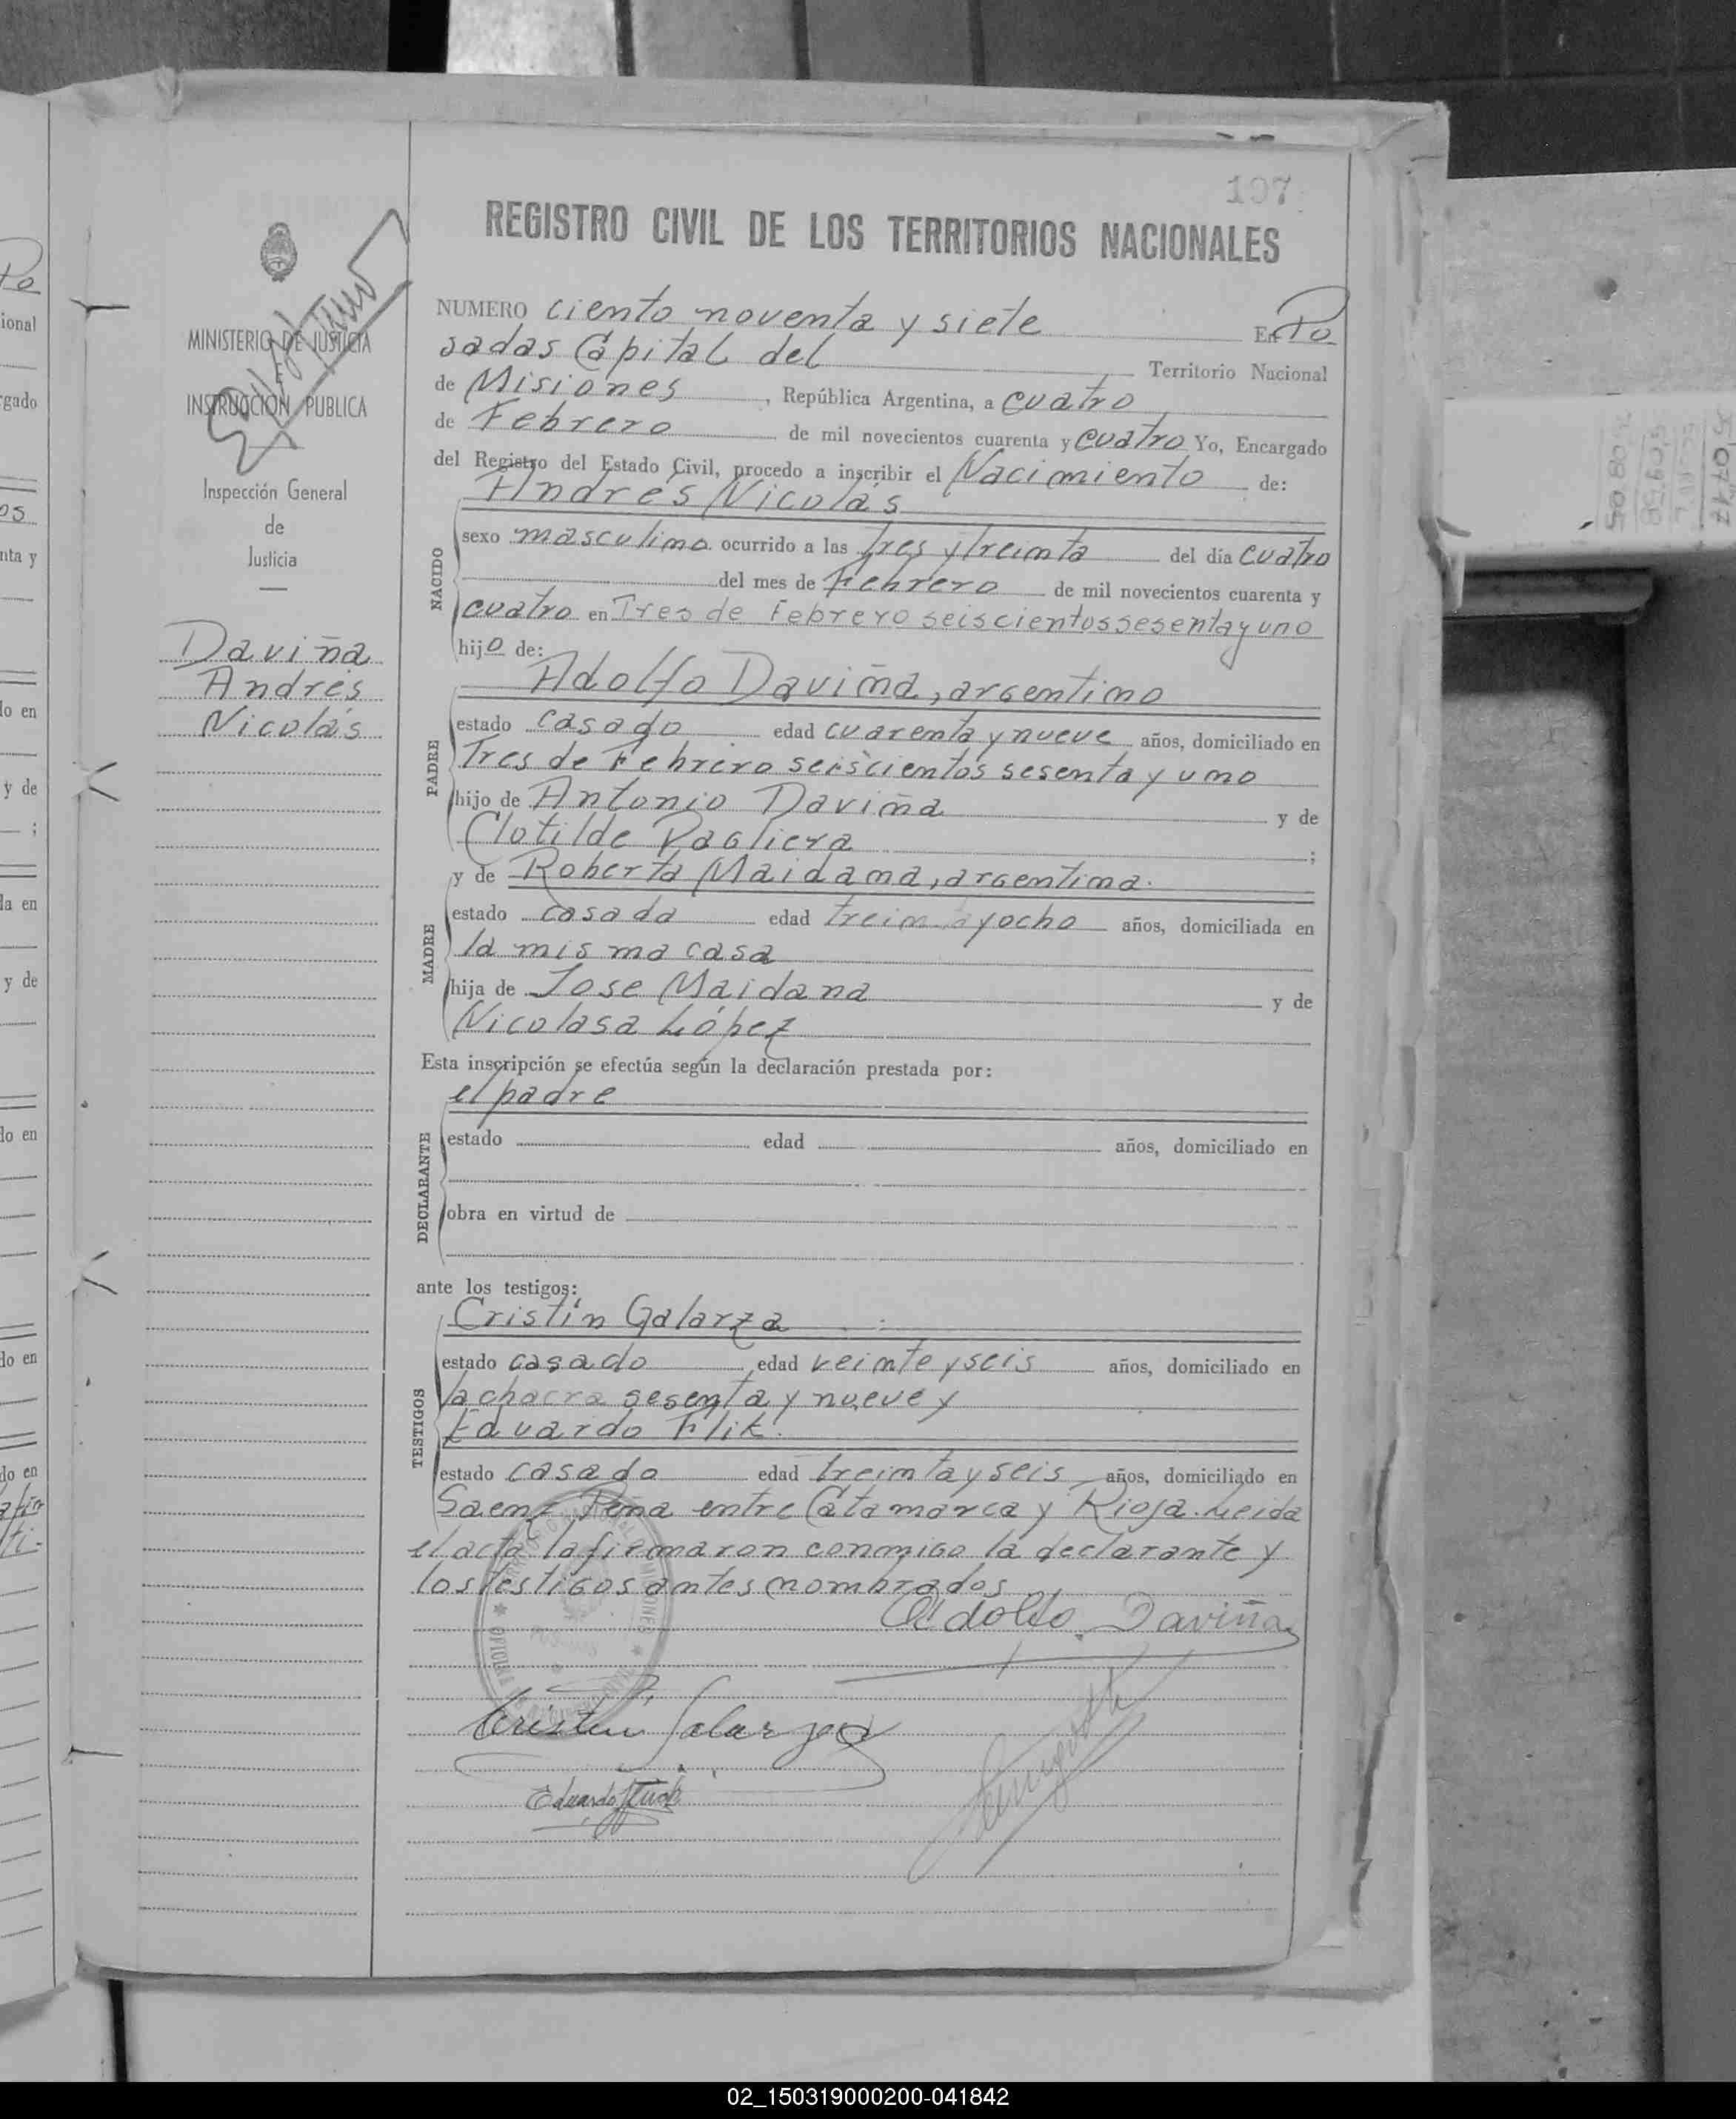 197
REGISTRO CIVIL DE LOS TERRITORIOS NACIONALES
MINISTERIO DE JUSTICIA
E
INSTRUCCION PUBLICA
Inspección General
de
Justicia
Daviña
Andrés
Nicolás
NUMERO ciento noventa y siete En Po
sadas Capital del Territorio Nacional
de Misiones, República Argentina, a cuatro
de Febrero de mil novecientos cuarenta y cuatro Yo, Encargado
del Registro del Estado Civil, procedo a inscribir el Nacimiento de:
Andrés Nicolás
NACIDO
sexo masculino ocurrido a las tres y treinta del día cuatro
del mes de Febrero de mil novecientos cuarenta y
cuatro en Tres de Febrero seiscientos sesenta y uno
hijo de:
PADRE
Adolfo Daviña, argentino
estado casado edad cuarenta y nueve años, domiciliado en
Tres de Febrero seiscientos sesenta y uno
hijo de Antonio Daviña y de
Clotilde Pagliera ;
MADRE
y de Roberta Maidana, argentina.
estado casada edad treinta y ocho años, domiciliada en
la misma casa
hija de Jose Maidana y de
Nicolasa López
Esta inscripción se efectúa según la declaración prestada por:
DECLARANTE
el padre
estado edad años, domiciliado en
obra en virtud de
ante los testigos:
TESTIGOS
Cristín Galarza
estado casado edad veinte y seis años, domiciliado en
la chacra sesenta y nueve y
Eduardo Flik.
estado casado edad treinta y seis años, domiciliado en
Saenz Peña entre Catamarca y Rioja. Leida
el acta la firmaron conmigo la declarante y
los testigos antes nombrados
Adolfo Daviña
Cristin Galarza
Eduardo
02_150319000200-041842